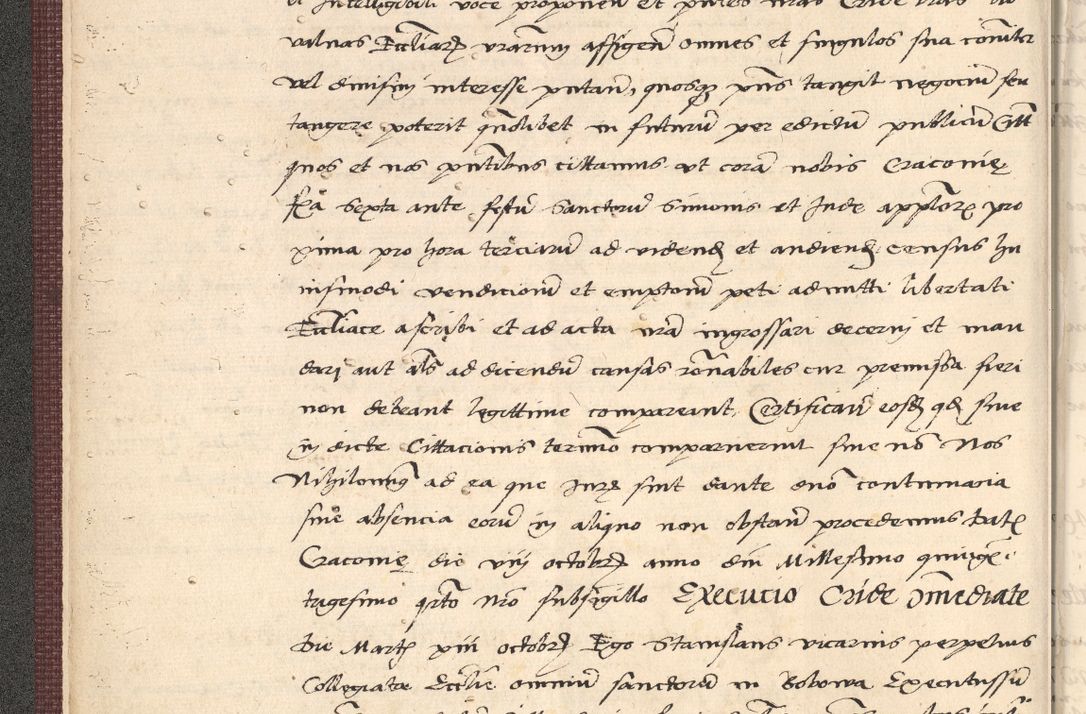 Intelligibili voce proponen et
valuas Eccliar vrarum affigen omnes et singulos sua comuniter
vel diuisim interesse putan, quosq pns tangit negociu seu
tangere poterit quolibet in futuru per edictu publicu Citt
quos et nos pntibus cittamus vt cora nobis Cracouie
fria Sexta ante festu Sanctoru Simonis et Jude applor pro
xima pro hora terciaru ad videnđ et audienđ census hu
iusmodi vendicionu et emptionu peti admitti libertati
Eccliace ascribi et ad acta nra ingrossari decerni et man
dari aut als ad dicendu causas ronabiles cur premissa fieri
non debeant legittime compareant, Certifican eosđ qđ siue
in dicte Cittacionis termino comparuerint siue no Nos
Nihilominq ad ea que Juris sint dante dno contumacia
siue absencia eoru in aliquo non obstan procedemus Dat
Cracouie die viij octobr anno dni Millesimo quingex
trigesimo qrto Nro subsigillo Execucio Cride Immediate
Die Martis xiij octobr Ego Stanislaus vicarius perpetuus
Collegiatæ Ecclie omniu sanctoru in Bobowa Executus su